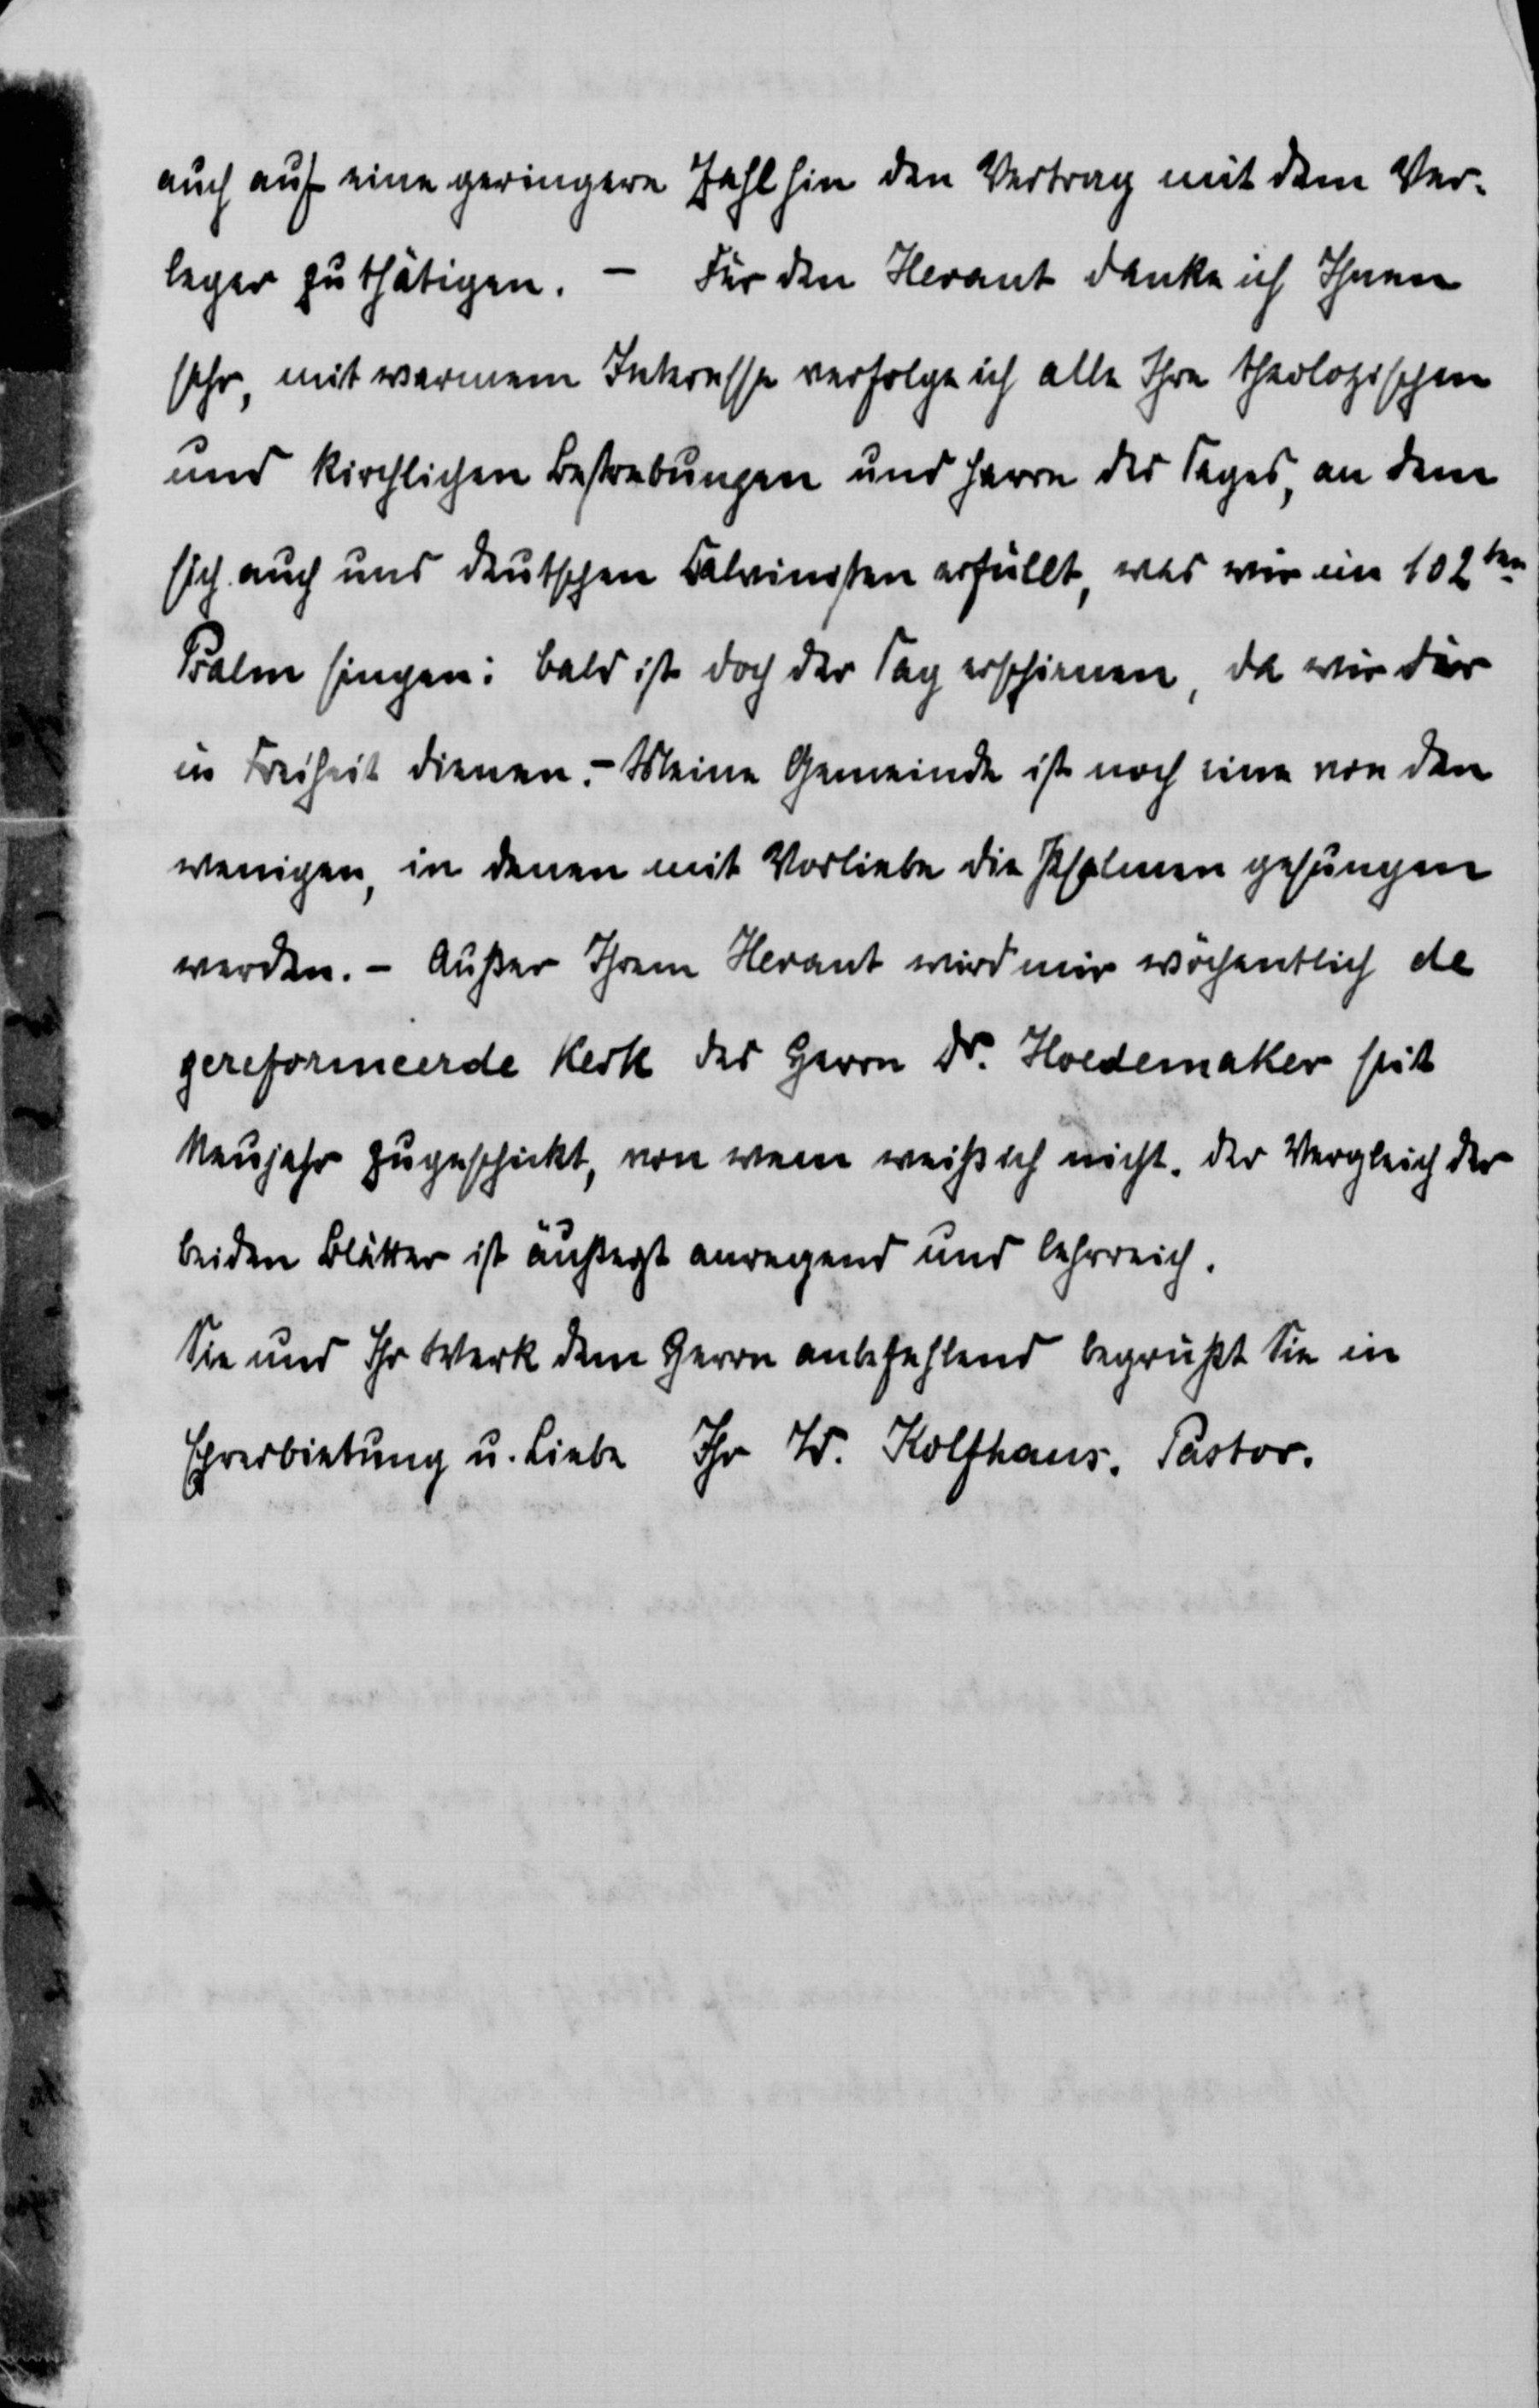 auch auf eine geringere Zahl hin den Vertrag mit dem Ver-
leger zu thätigen. – Für den Heraut danke ich Ihnen
sehr, mit warmem Interesse verfolge ich alle Ihre theologischen
und kirchlichen Bestrebungen und harre des Tages, an dem
sich auch uns deutschen Calvinisten erfüllt, was wir im 102ten
Psalm singen: bald ist doch der Tag erschienen, da wir dir
in Freiheit dienen. – Meine Gemeinde ist noch eine von den
wenigen, in denen mit Vorliebe die Psalmen gesungen
werden. – Außer Ihrem Heraut wird mir wöchentlich de
gereformeerde Kerk des Herrn Dr. Hoedemaker seit
Neujahr zugeschickt, von wem weiß ich nicht. Der Vergleich der
beiden Blätter ist äußerst anregend und lehrreich.
Sie und Ihr Werk dem Herrn anbefehlend begrüßt Sie in
Ehrerbietung u. Liebe Ihr W. Kolfhaus, Pastor.